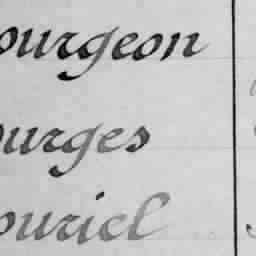 ourgeon
ourges
ouriel